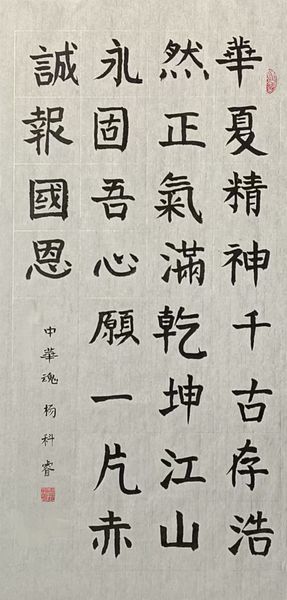 華夏精神千古存浩
然正氣滿乾坤江山
永固吾心願一片赤
誠報國恩
中華魂 杨科睿